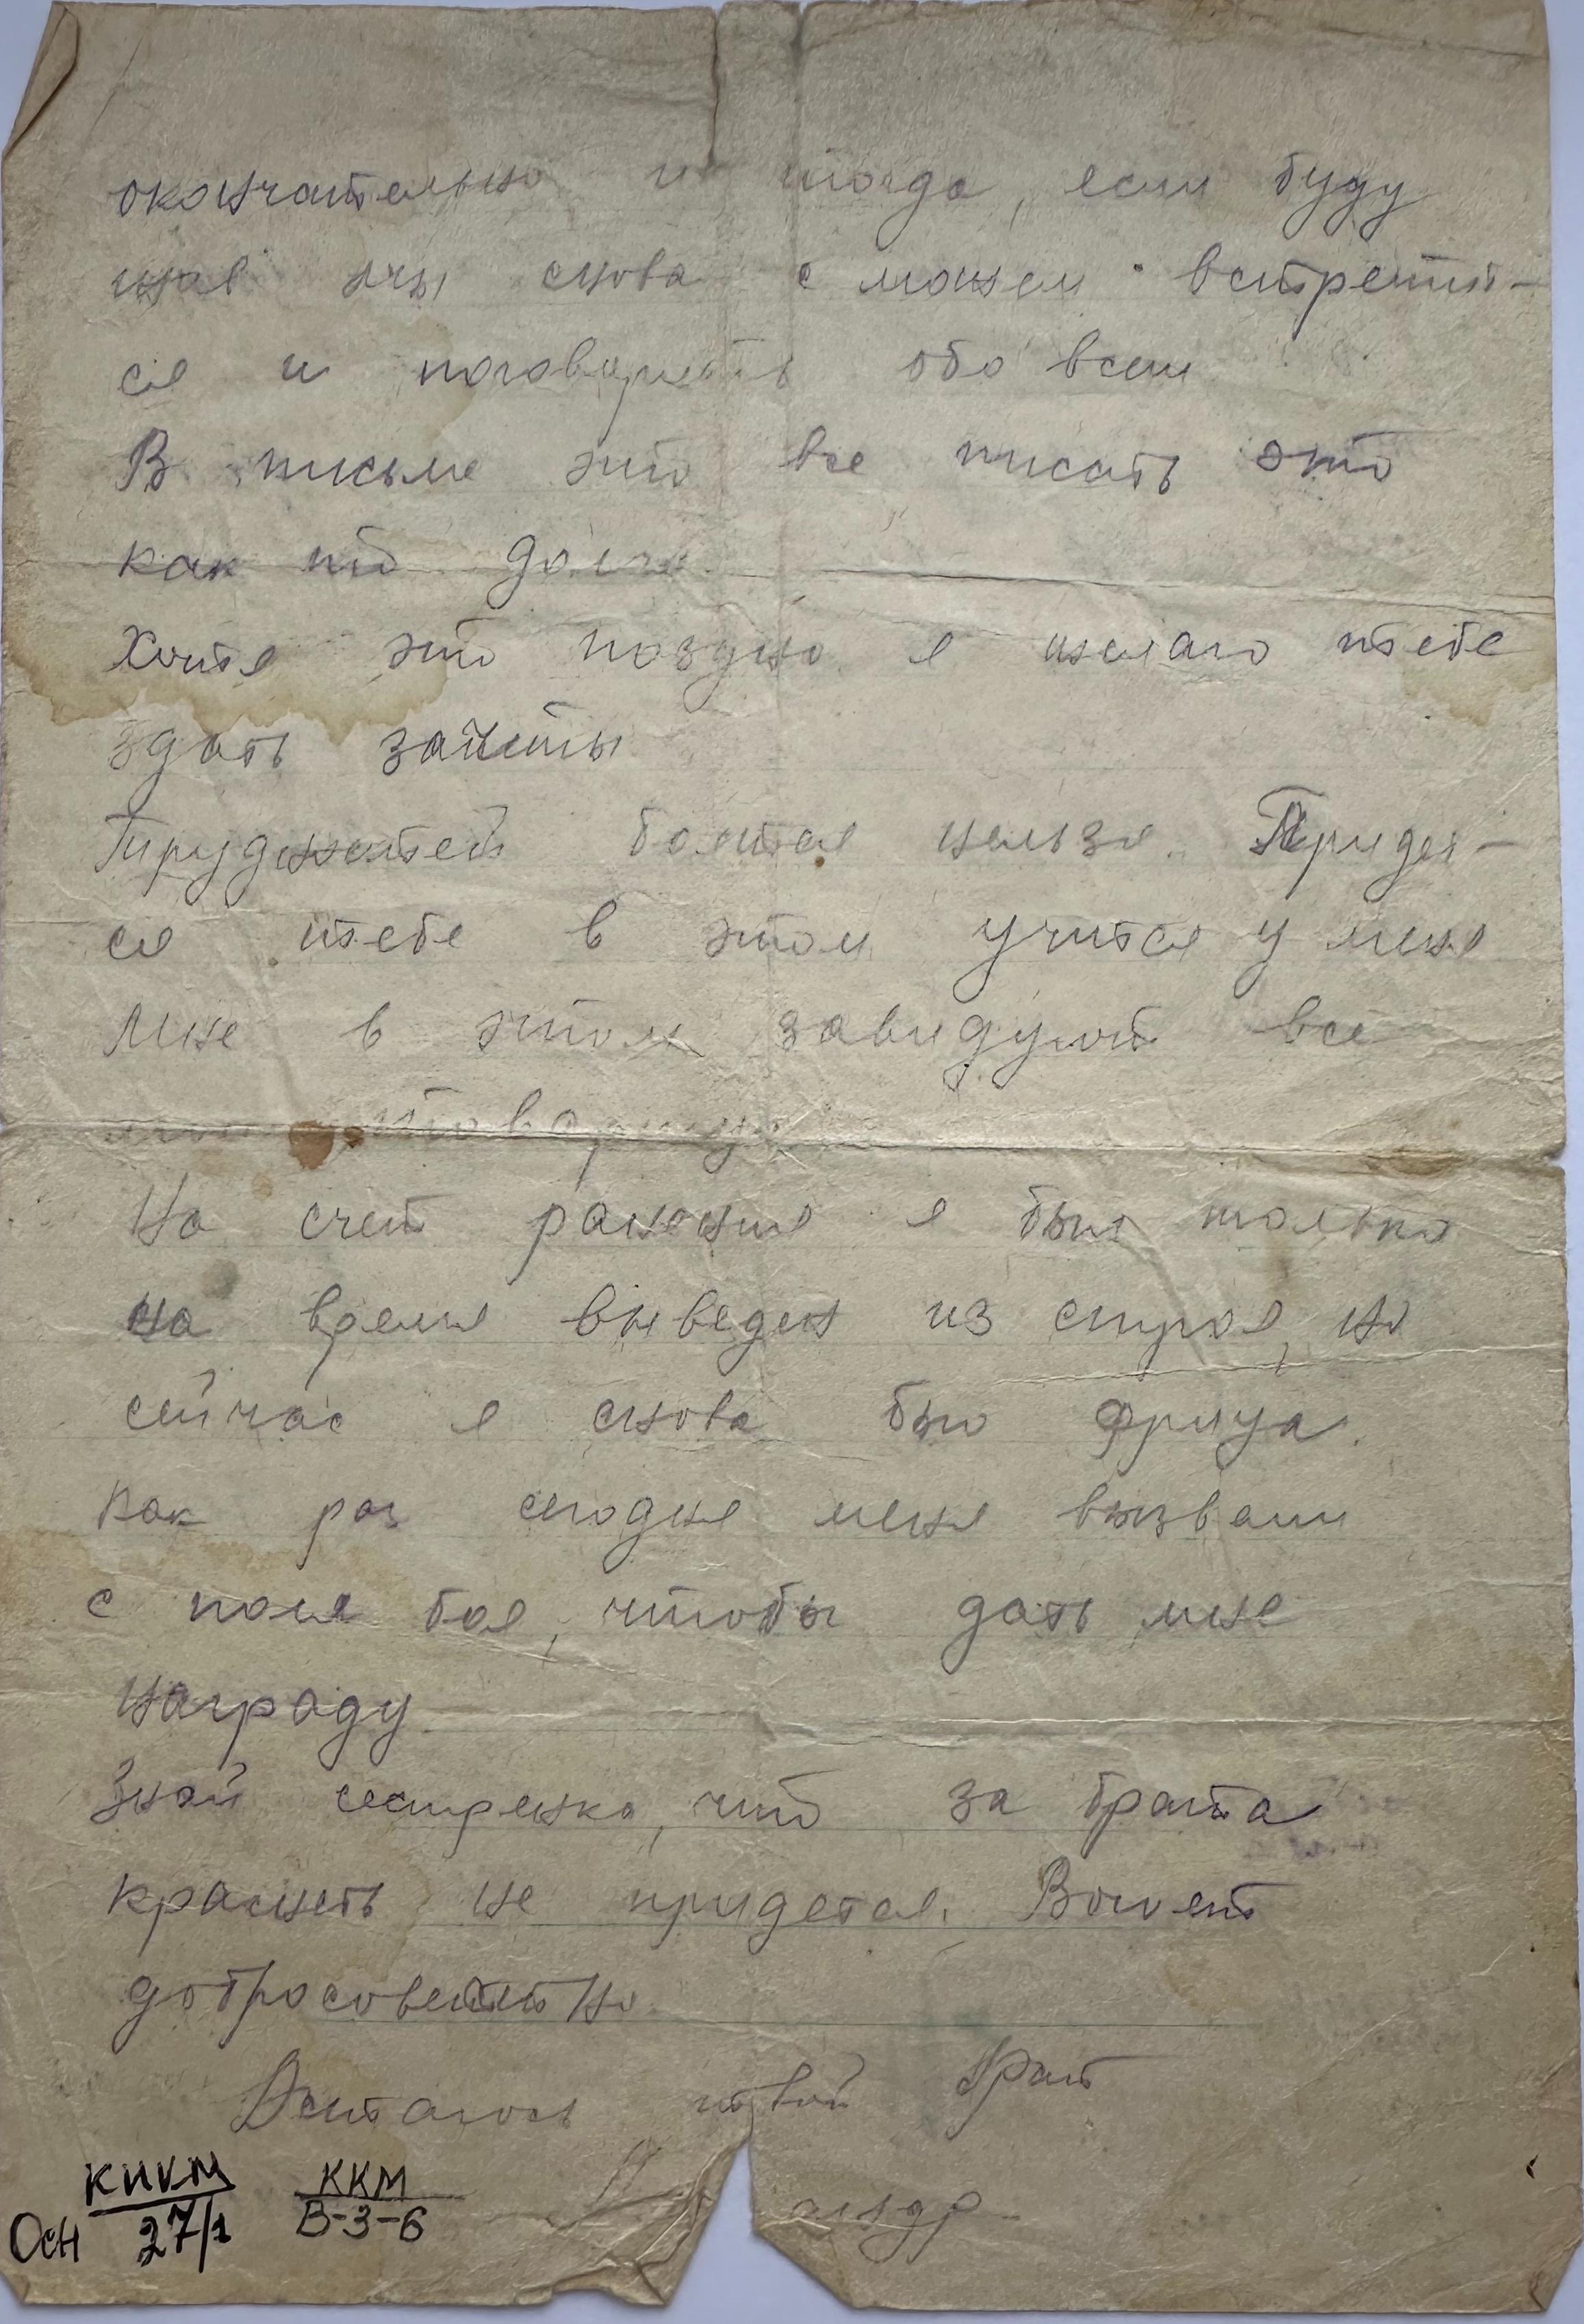 окончательно и тогда, если буду
жив мы снова сможем встретит-
ся и поговорить обо всем
В письме это все писать это
как то долго.
Хотя это поздно я желаю тебе
здать зачеты
Трудностей боятся нельзя. Придет-
ся тебе в этом учится у меня
Мне в этом завидуют все
мои товарищи
На счет ранения я был только
на время выведен из строя, но
сейчас я снова бью фрица.
Как раз сегодня меня вызвали
с поля боя, чтобы дать мне
награду
Знай сестренка, что за брата
краснеть не придется. Воюет
добросовестно
Остаюсь твой брат
КИКМ ККМ
Осн 27/1 В-3-6